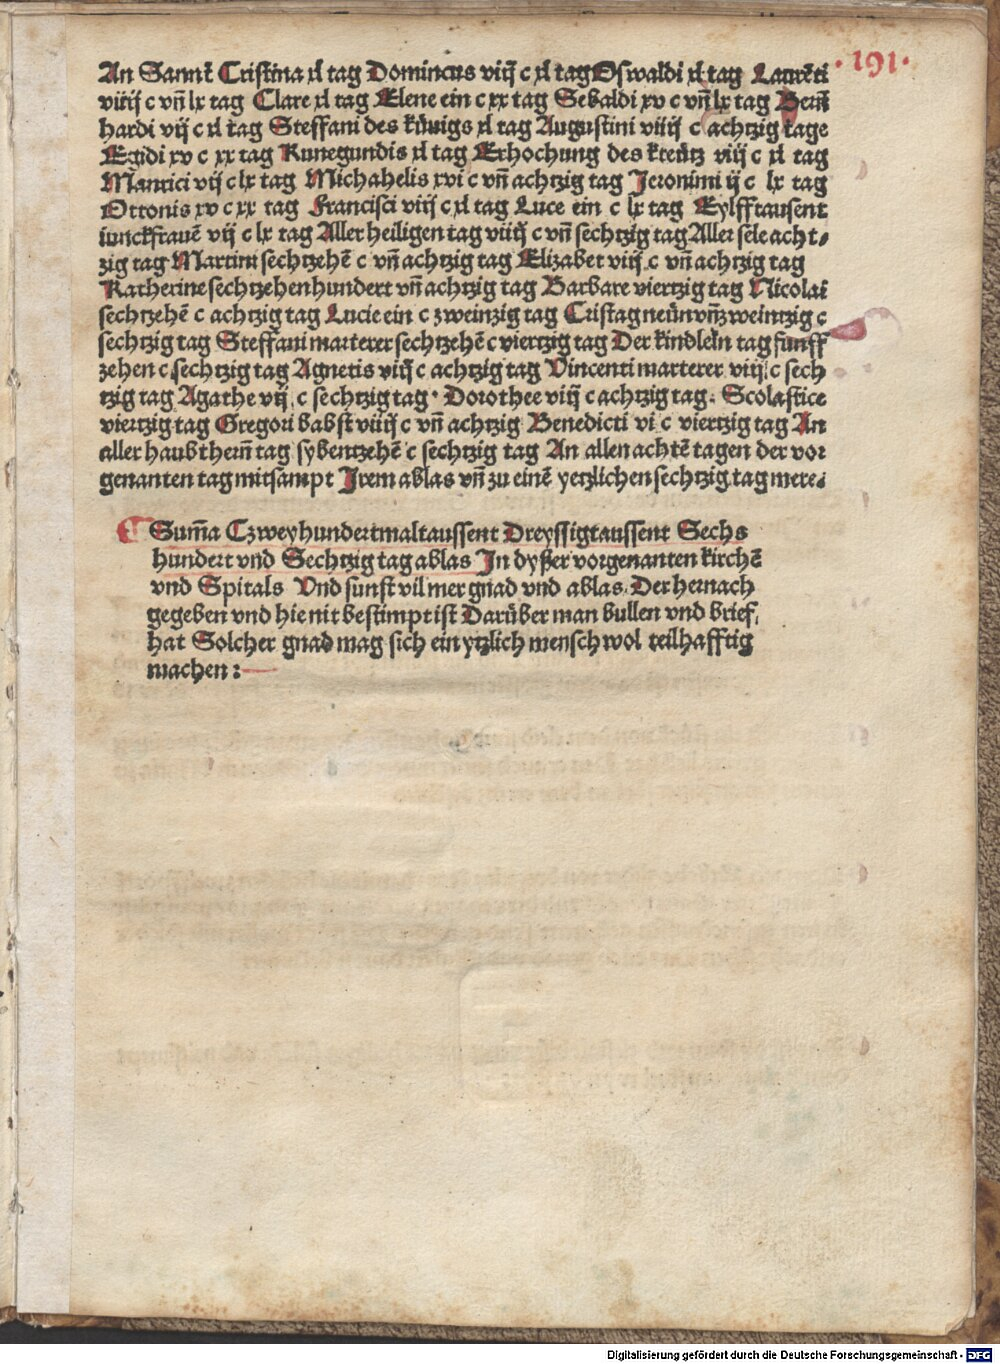 ·191·
An Sannt̄ Cristina xl tag Domincus viiij c xl tag Oswaldi xl tag Laurēti
viiij c vn̄ lx tag Clare xl tag Elene ein c xx tag Sebaldi xv c vn̄ lx tag Bern̄
hardi vij c xl tag Steffani des künigs xl tag Augustini viiij c achtzig tage
Egidi xv c xx tag Kunegundis xl tag Erhochung des kreütz viij c xl tag
Mauricij c lx tag Michahelis xvi c vn̄ achtzig tag Jeronimi ij c lx tag
Ottonis xv c xx tag Francisci viiij c xl tag Luce ein c lx tag Eylfftausent
iunckfrauē vij c lx tag Aller heiligen tag viiij c vn̄ sechtzig tag Aller sele acht⸗
zig tag Martini sechtzehē c vn̄ achtzig tag Elizabet viiij c vn̄ achtzig tag
Katherine sechtzehenhundert vn̄ achtzig tag Barbare viertzig tag Nicolai
sechtzehē c achtzig tag Lucie ein c zweinzig tag Cristag neün vn̄ zweintzig c
sechtzig tag Steffani marterer sechtzehē c viertzig tag Der kindlein tag funff
zehen c sechtzig tag Agnetis viiij c achtzig tag Vincenti marterer viiij c sech
tzig tag Agathe vij c sechtzig tag· Dorothee viij c achtzig tag· Scolastice
viertzig tag Gregori babst viiij c vn̄ achtzig Benedicti vi c viertzig tag An
aller haubthern̄ tag sybentzehē c sechtzig tag An allen achtē tagen der vor
genanten tag mitsampt Irem ablas vn̄ zu einē yetzlichen sechtzig tag mere.
Sum̄a Czweyhundertmaltaussent Dreyssigtaussent Sechs
hundert vnd Sechtzig tag ablas In dyßer vorgenanten kirchē
vnd Spitals Vnd sunst vil mer gnad vnd ablas. Der hernach
gegeben vnd hie nit bestimpt ist Darüber man bullen vnd brief,
hat Solcher gnad mag sich ein ytzlich mensch wol teilhafftig
machen :
Digitalisierung gefördert durch die Deutsche Forschungsgemeinschaft - DFG